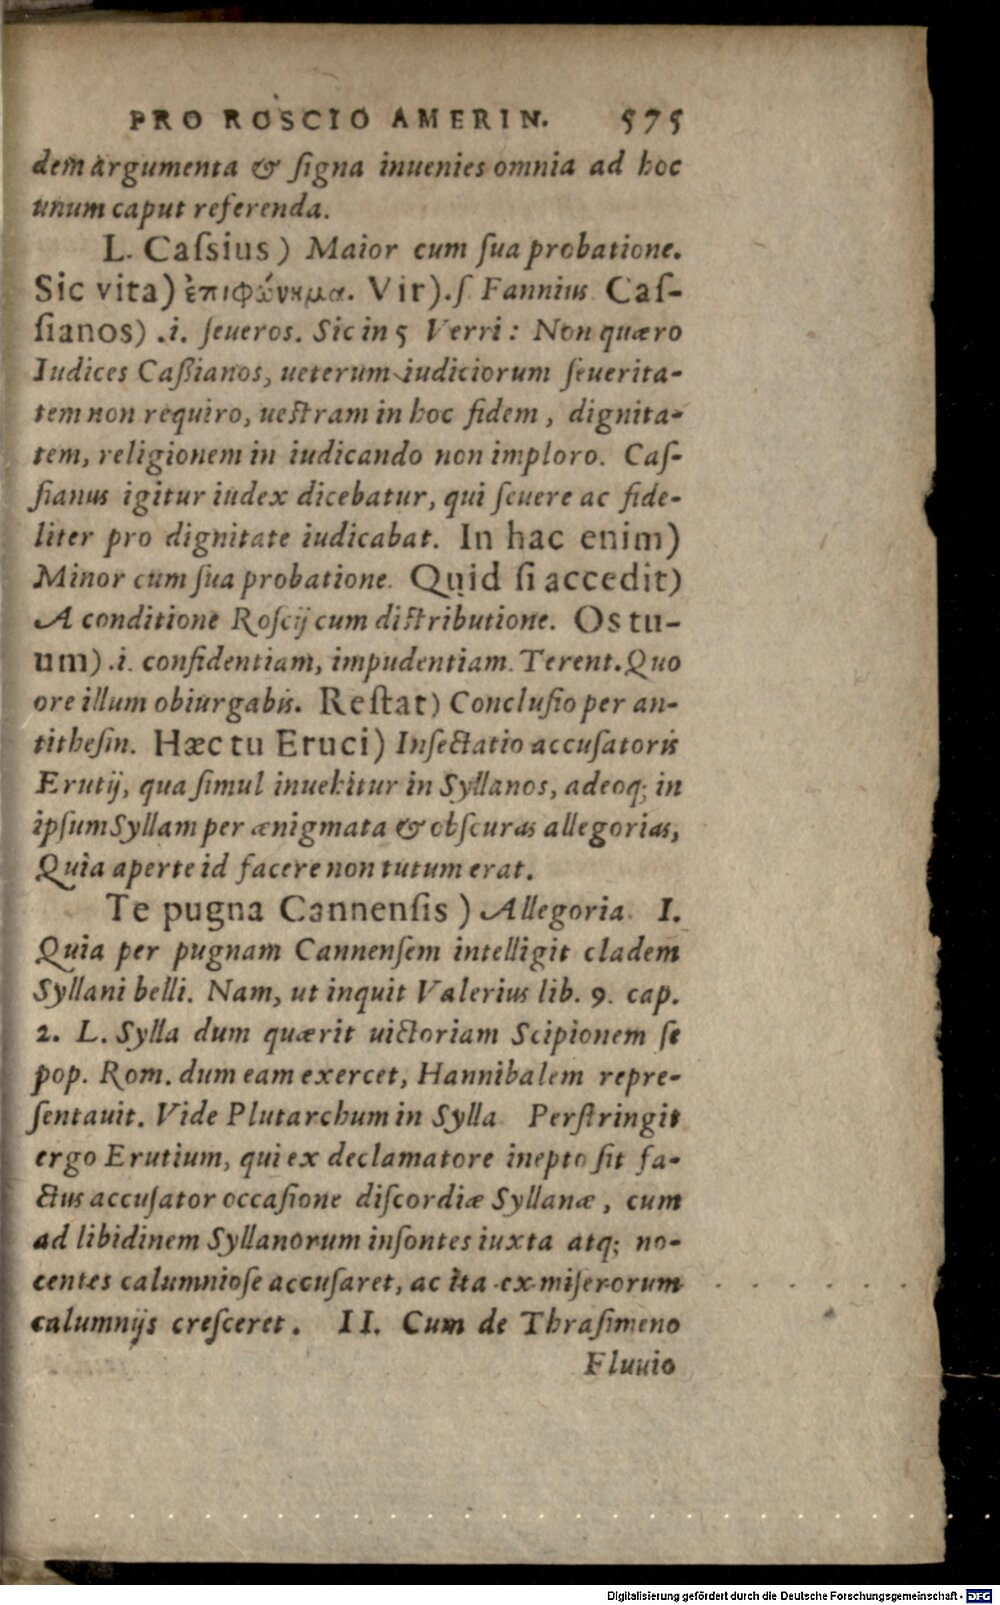 PRO ROSCIO AMERIN. 575
dem argumenta & ſigna inuenies omnia ad hoc
unum caput referenda.
L. Caſsius) Maior cum ſua probatione.
Sic vita) ἐπιφώνημα. Vir) .ſ Fannius. Caſ-
ſianos) .i. ſeueros. Sic in 5 Verri: Non quæro
Iudices Caßianos, ueterum iudiciorum ſeuerita-
tem non requiro, ueſtram in hoc fidem, dignita-
tem, religionem in iudicando non imploro. Caſ-
ſianus igitur iudex dicebatur, qui ſeuere ac fide-
liter pro dignitate iudicabat. In hac enim)
Minor cum ſua probatione. Quid ſi accedit)
A conditione Roſcij cum diſtributione. Os tu-
um) .i. confidentiam, impudentiam. Terent. Quo
ore illum obiurgabis. Reſtat) Concluſio per an-
titheſin. Hæc tu Eruci) Inſectatio accuſatoris
Erutij, qua ſimul inuehitur in Syllanos, adeoq; in
ipſum Syllam per ænigmata & obſcuras allegorias,
Quia aperte id facere non tutum erat.
Te pugna Cannenſis) Allegoria. I.
Quia per pugnam Cannenſem intelligit cladem
Syllani belli. Nam, ut inquit Valerius lib. 9. cap.
2. L. Sylla dum quærit uictoriam Scipionem ſe
pop. Rom. dum eam exercet, Hannibalem repre-
ſentauit. Vide Plutarchum in Sylla. Perſtringit
ergo Erutium, qui ex declamatore inepto ſit fa-
ctus accuſator occaſione diſcordiæ Syllanæ, cum
ad libidinem Syllanorum inſontes iuxta atq; no-
centes calumnioſe accuſaret, ac ita ex miſerorum
calumnijs creſceret. II. Cum de Thraſimeno
Fluuio
Digitalisierung gefördert durch die Deutsche Forschungsgemeinschaft - DFG